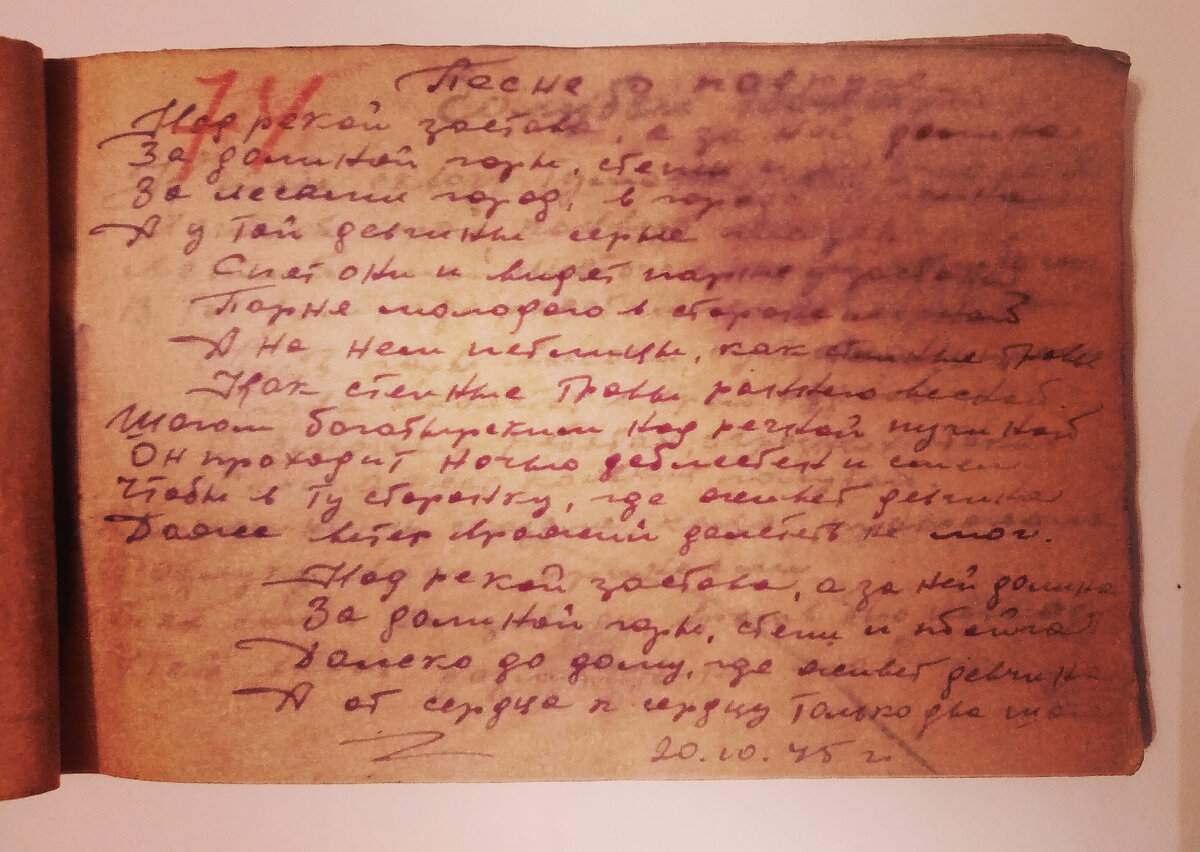 74
Песня о
Над рекой застава, а за ней долина
За долиной горы, степи и
За лесами город, в городе
А у той девчины серые
Спет они и видет парня у заставы
Парня молодого в стороне лесной
А на нем петлицы, как степные травы
Как степные травы раннею весной
Шагом богатырским над речной пучиной
Он проходит ночью доблестен и
Чтобы в ту сторонку, где живет девчина
Даже ветер вражий долететь не мог.
Над рекой застава, а за ней долина
За долиной горы, степи и тайга
Далеко до дому, где живет девчина
А от сердца к сердцу только два
20.10.45 г.